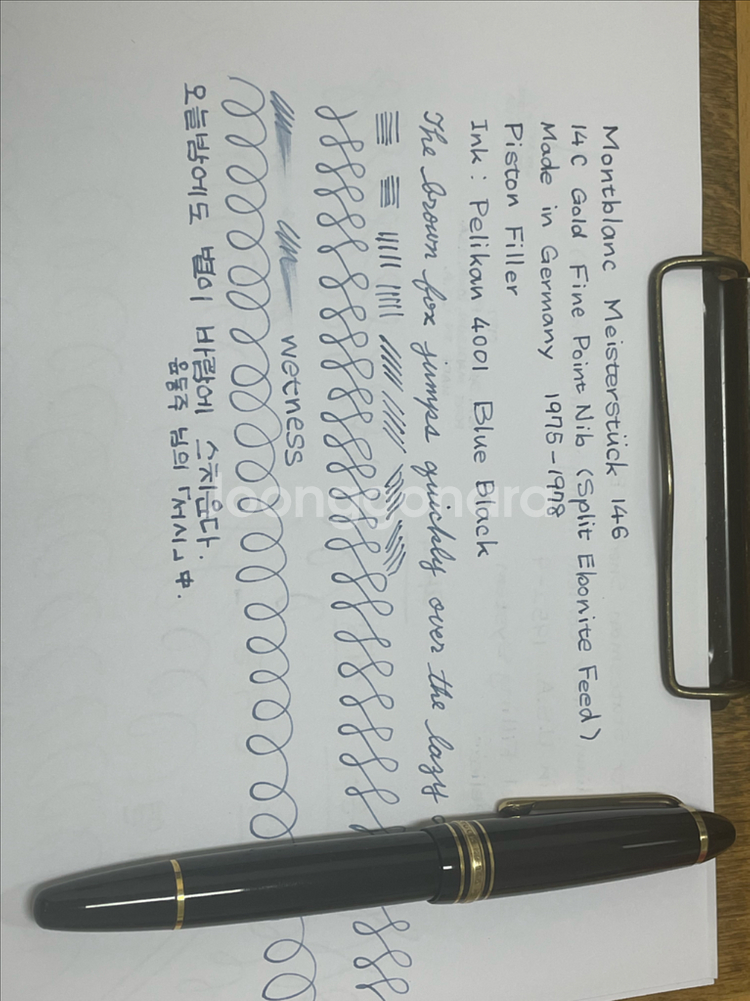 Montblanc Meisterstück 146
14C Gold Fine Point Nib (Split Ebonite Feed)
Made in Germany 1975-1978
Piston Filler
Ink : Pelikan 4001 Blue Black
The brown fox jumps quickly over the lazy
wetness
오늘밤에도 별이 바람에 스치운다.
윤동주 님의 「서시」 中.
joonggonara